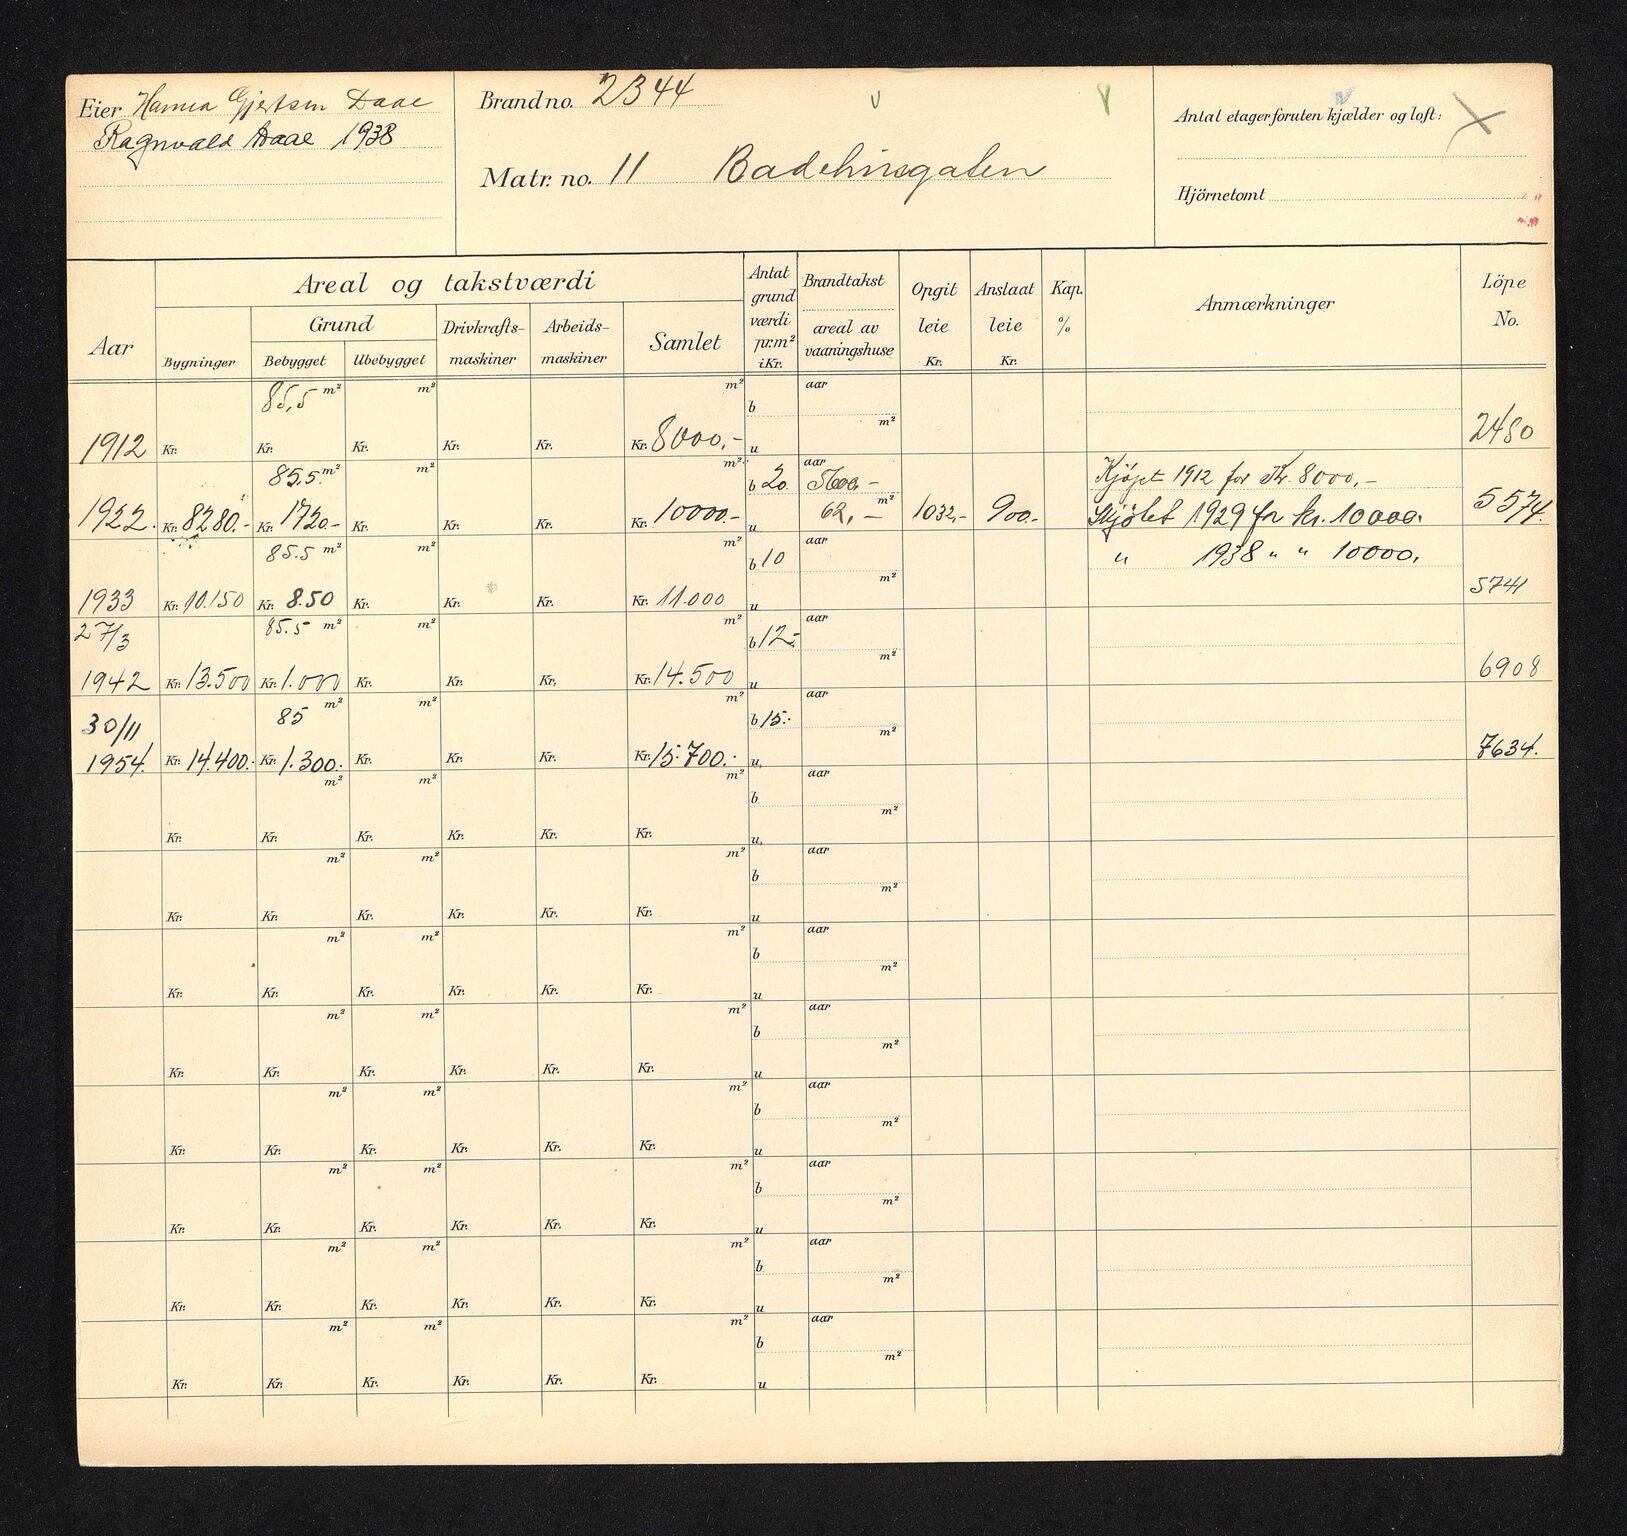 Eier Hanna Gjertsen Daae
Ragnvald Daae 1938
Brandno. 2344
Matr. no. 11 Badehusgaten
Antal etager foruten kjælder og loft:
Hjörnetomt
Aar
Areal og takstværdi
Bygninger
Grund
Bebygget
Ubebygget
Drivkrafts-
maskiner
Arbeids-
maskiner
Samlet
Antat
grund
værdi
pr. m²
i Kr.
Brandtakst
areal av
vaaningshuse
Opgit
leie
Kr.
Anslaat
leie
Kr.
Kap.
%
Anmærkninger
Löpe
No.
85,5 m² m² m² b aar m²
1912 Kr. Kr. Kr. Kr. Kr. Kr. 8000,- u 2480
85.5. m² m² m² b 20 aar Kjøpt 1912 for Kr. 8000,-
1922. Kr. 8280.- Kr. 1720.- Kr. Kr. Kr. Kr. 10000.- u 62,- m² 1032,- 900.- Skjøtet 1929 for kr. 10000. 5574.
85.5 m² m² m² b 10 aar m² " 1938 " " 10000.
1933 Kr. 10.150 Kr. 8.50 Kr. Kr. Kr. Kr. 11.000 u 5741
27/3 85.5 m² m² m² b 12.- aar m²
1942 Kr. 13.500 Kr. 1.000 Kr. Kr. Kr. Kr. 14.500 u 6908
30/11 85 m² m² m² b 15.- aar m²
1954. Kr. 14.400.- Kr. 1.300.- Kr. Kr. Kr. Kr. 15.700.- u. 7634.
m² m² m² b aar m²
Kr. Kr. Kr. Kr. Kr. Kr. u.
m² m² m² b aar m²
Kr. Kr. Kr. Kr. Kr. Kr. u
m² m² m² b aar m²
Kr. Kr. Kr. Kr. Kr. Kr. u
m² m² m² b aar m²
Kr. Kr. Kr. Kr. Kr. Kr. u
m² m² m² b aar m²
Kr. Kr. Kr. Kr. Kr. Kr. u
m² m² m² b aar m²
Kr. Kr. Kr. Kr. Kr. Kr. u
m² m² m² b aar m²
Kr. Kr. Kr. Kr. Kr. Kr. u
m² m² m² b aar m²
Kr. Kr. Kr. Kr. Kr. Kr. u